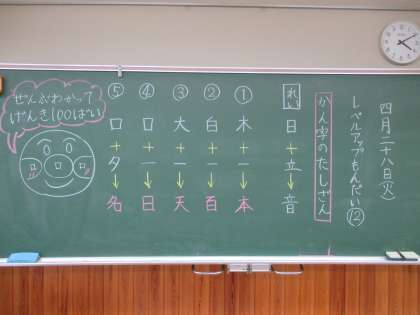 四月二十八日(火)
レベルアップもんだい⑫
かん字のたしざん
れい 日+立→音
① 木+一→本
② 白+一→百
③ 大+一→天
④ 口+一→日
⑤ 口+夕→名
ぜんぶわかって
げんき100ばい